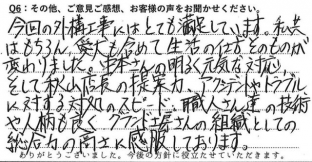 Q6：その他、ご意見ご感想、お客様の声をお聞かせください。
今回の外構工事にはとても満足しています。私共
はもちろん、愛犬も含めて生活の仕方そのものが
変わりました。中本さんの明るく元気な対応
そして秋山店長の提案力、アクシデントやトラブル
に対する対処のスピード、職人さん達の技術
や人柄も良く、グランド工房さんの組織としての
総合力の高さに感服しております。
ありがとうございました。今後の方針に役立たせていただきます。